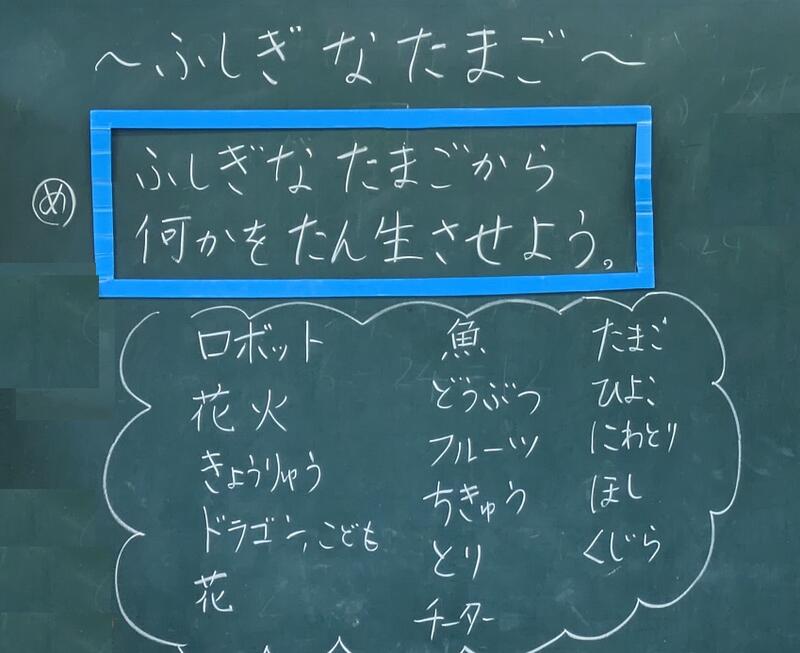 ～ふしぎなたまご～
め
ふしぎなたまごから
何かをたん生させよう。
ロボット
花火
きょうりゅう
ドラゴン、こども
花
魚
どうぶつ
フルーツ
ちきゅう
とり
チーター
たまご
ひよこ
にわとり
ほし
くじら